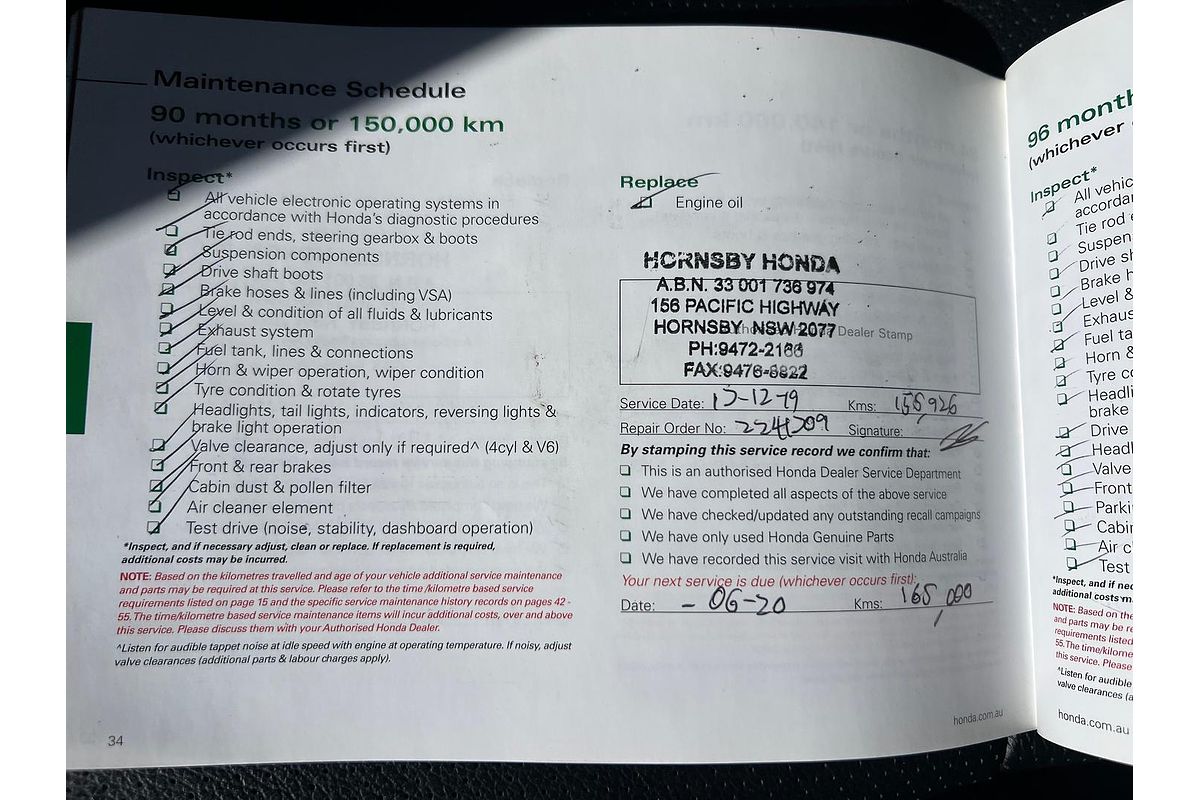 Maintenance Schedule
90 months or 150,000 km
(whichever occurs first)
Inspect*
All vehicle electronic operating systems in
accordance with Honda's diagnostic procedures
Tie rod ends, steering gearbox & boots
Suspension components
Drive shaft boots
Brake hoses & lines (including VSA)
Level & condition of all fluids & lubricants
Exhaust system
Fuel tank, lines & connections
Horn & wiper operation, wiper condition
Tyre condition & rotate tyres
Headlights, tail lights, indicators, reversing lights &
brake light operation
Valve clearance, adjust only if required^ (4cyl & V6)
Front & rear brakes
Cabin dust & pollen filter
Air cleaner element
Test drive (noise, stability, dashboard operation)
*Inspect, and if necessary adjust, clean or replace. If replacement is required,
additional costs may be incurred.
NOTE: Based on the kilometres travelled and age of your vehicle additional service maintenance
and parts may be required at this service. Please refer to the time /kilometre based service
requirements listed on page 15 and the specific service maintenance history records on pages 42 -
55. The time/kilometre based service maintenance items will incur additional costs, over and above
this service. Please discuss them with your Authorised Honda Dealer.
^Listen for audible tappet noise at idle speed with engine at operating temperature. If noisy, adjust
valve clearances (additional parts & labour charges apply).
34
Replace
Engine oil
HORNSBY HONDA
A.B.N. 33 001 736 974
156 PACIFIC HIGHWAY
HORNSBY NSW 2077
Dealer Stamp
PH:9472-2166
FAX:9476-8822
Service Date: -12-19 Kms: 156,926
Repair Order No: Signature:
By stamping this service record we confirm that:
This is an authorised Honda Dealer Service Department
We have completed all aspects of the above service
We have checked/updated any outstanding recall campaigns
We have only used Honda Genuine Parts
We have recorded this service visit with Honda Australia
Your next service is due (whichever occurs first):
Date: - 06-20 Kms: 165,000
honda.com.au
96 month
(whichever
Inspect*
All vehic
accorda
Tie rod
Suspen
Drive sh
Brake h
Level &
Exhaus
Fuel ta
Horn &
Tyre co
Headli
brake
Drive
Headl
Valve
Front
Parki
Cabin
Air c
Test
*Inspect, and if nec
additional costs m
NOTE: Based on the
and parts may be re
requirements listed
55. The time/kilome
this service. Please
^Listen for audible
valve clearances (a
honda.com.au